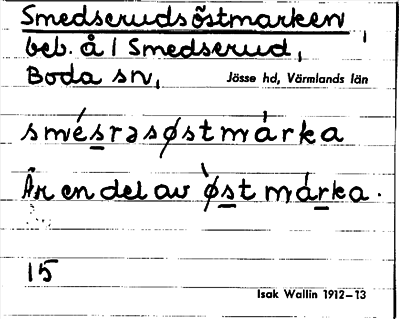 Smedserudsöstmarken,
beb. å 1 Smedserud,
Boda sn,
Jösse hd, Värmlands län
smésrasøstmàrka
Är en del av ø̀stmárka.
15
Isak Wallin 1912–13